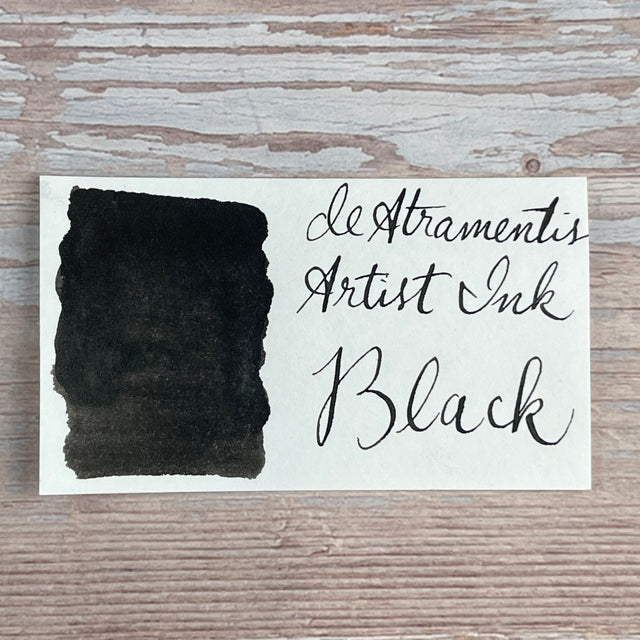 de Atramentis
Artist Ink
Black